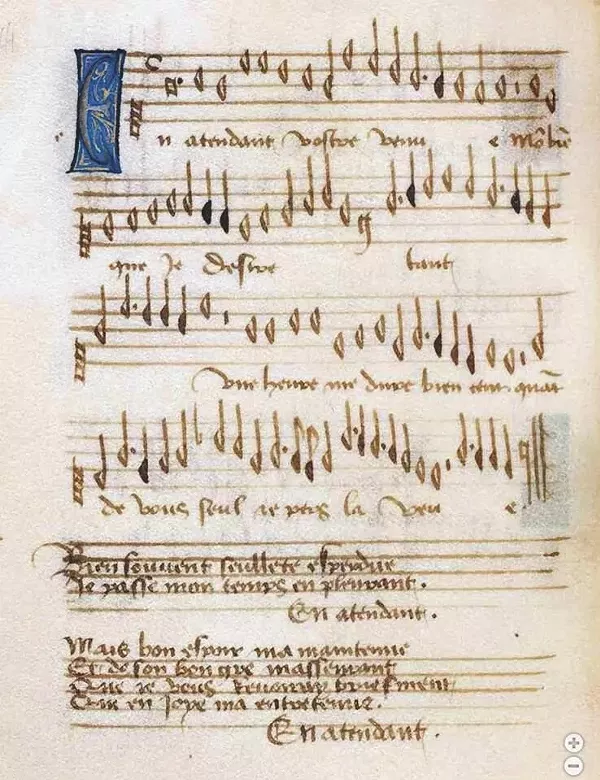 En atendant vostre venu e Mõ biẽ
que Je desire tant
Une heure me dure bien tant quãt
de vous seul je pers la veu e
Bien souvent seullete esperdue
Je passe mon temps en pleurant.
En atendant.
Mais bon espoir ma maintenue
Et de son bon gre massenrant
Que je vous Revoiray briefment
Qui en Joye ma entretenue.
En atendant.